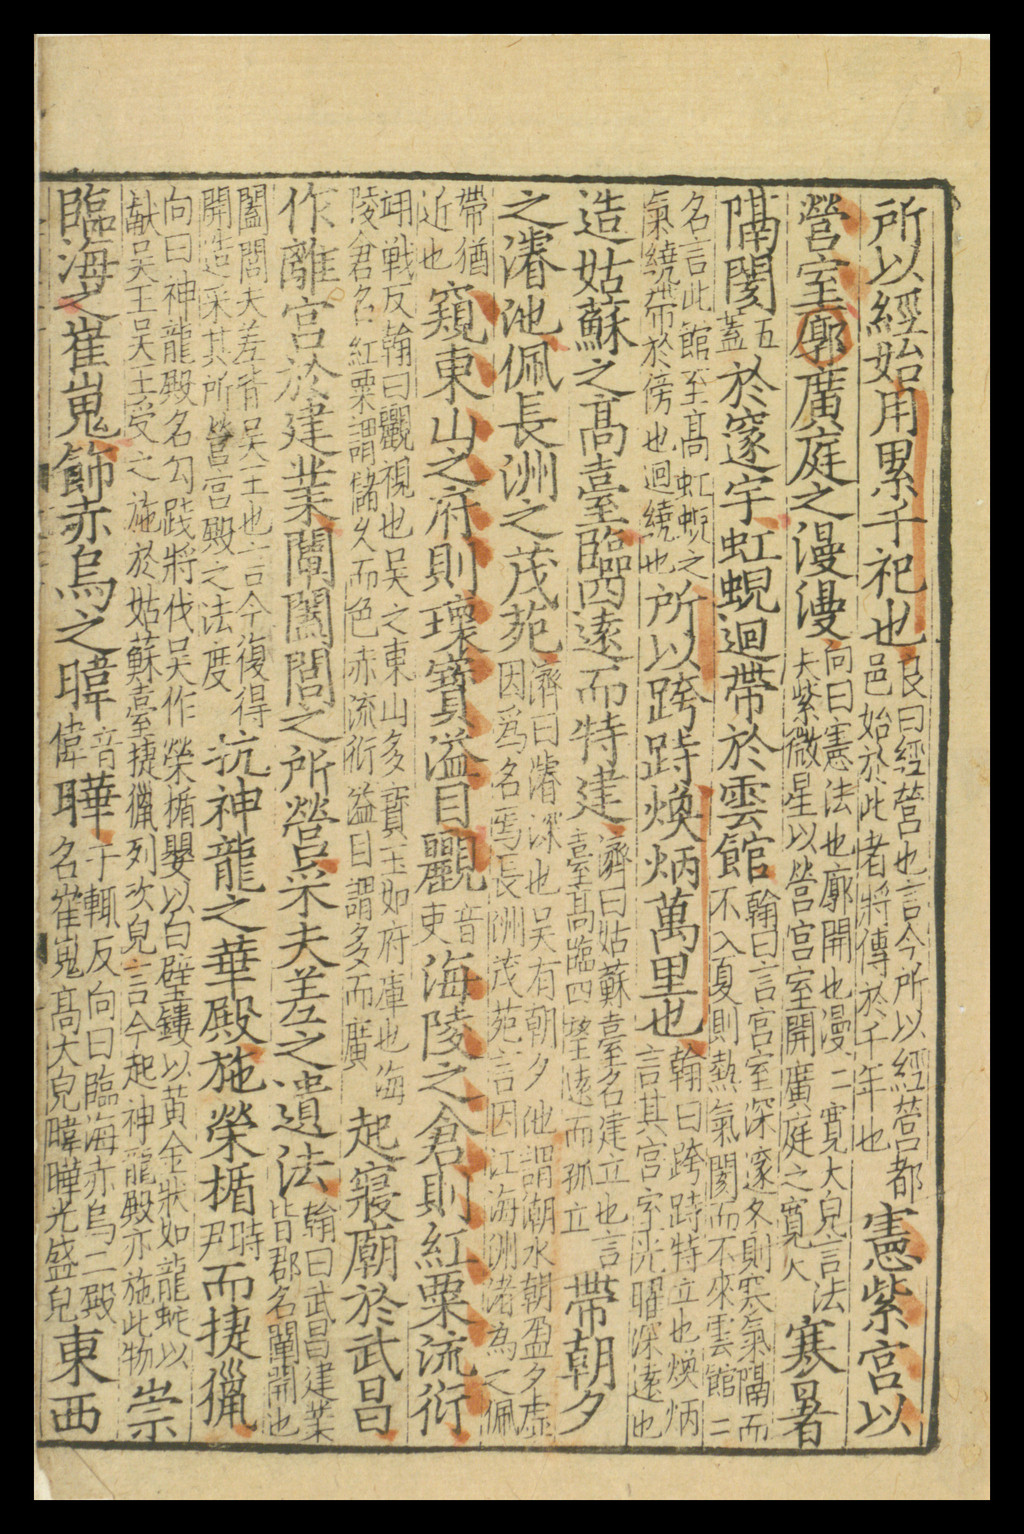 所以經始用累千祀也良曰經營也言今所以經营都邑始於此者將傳於千年也憲紫宮以
營室廓廣庭之漫漫向曰憲法也廓開也漫二寛大皃言法天紫微星以營宫室開廣庭之寛大寒暑
隔閡五蓋於邃宇虹蜺迴帶於雲館翰曰言宫室深邃冬則寒氣隔而不入夏則熱氣閡而不來雲館二
名言此館至髙虹蜺之氣繞帶於傍也迴繞也所以跨跱焕炳萬里也翰曰跨跱特立也焕炳言其宫室光曜深遠也
造姑蘇之髙臺臨四遠而特建濟曰姑蘇臺名建立也言臺髙臨四望遠而孤立帶朝夕
之濬池佩長洲之茂苑濟曰濬深也吴有朝夕池謂潮水朝盈夕虚因爲名焉長洲茂苑言因江海洲渚為之佩
帶猶近也窺東山之府則瓌寳溢目䚕音吏海陵之倉則紅粟流衍
翊戰反翰曰䚕視也吴之東山多寳玉如府庫也海陵倉名紅粟謂儲乆而色赤流衍溢目謂多而廣起寢廟於武昌
作離宫於建業闡闔閭之所營采夫差之遺法翰曰武昌建業皆郡名闡開也
闔閭夫差皆吴王也言今復得開造采其所營宫殿之法度抗神龍之華殿施榮楯時尹而捷獵
向曰神龍殿名勾踐將伐吴作榮楯嬰以白壁鏤以黄金狀如龍蛇以献吴王吴王受之施於姑蘇臺捷獵列次皃言今起神龍殿亦施此物崇
臨海之崔嵬飾赤烏之暐音偉曄于輒反向曰臨海赤烏二殿名崔嵬髙大皃暐曄光盛皃東西